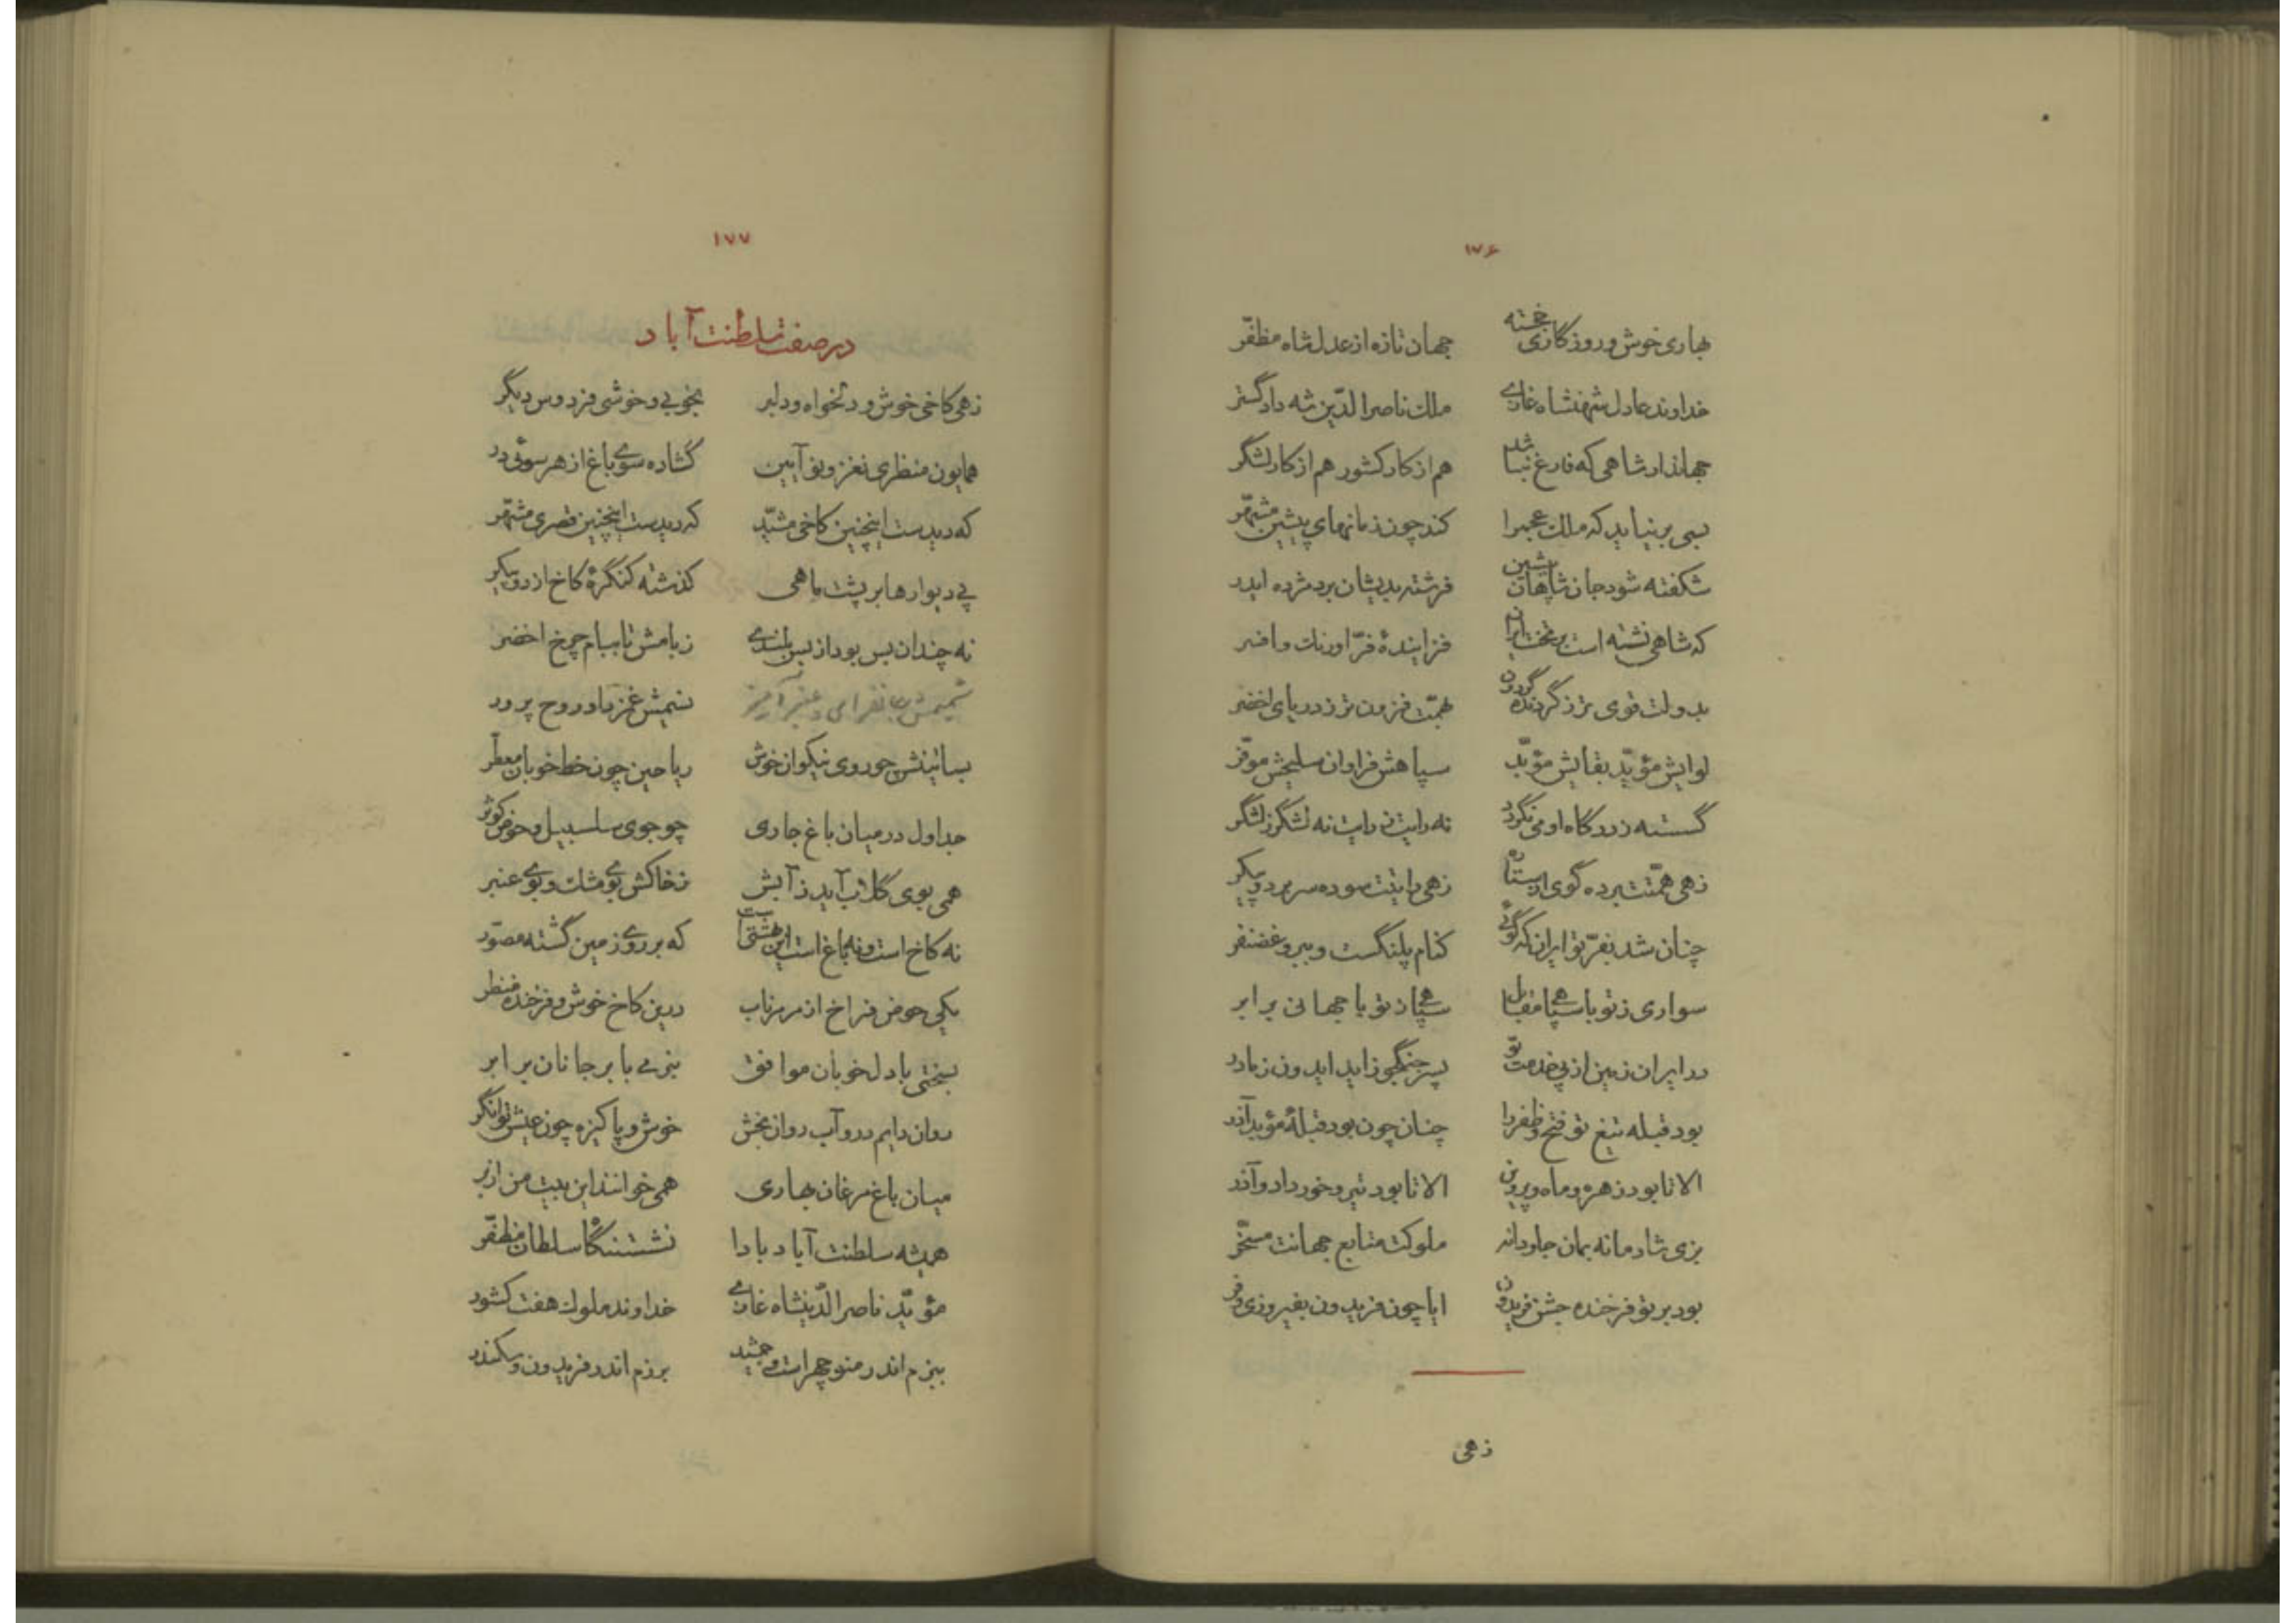 ۱۷۶
بهاری خوش و روزگاری خجسته جهان تازه از عدل شاه مظفّر
خداوند عادل شهنشاه غازی ملک ناصرالدّین شه دادگستر
جهاندار شاهی که فارغ نباشد هم از کار کشور هم از کار لشگر
بسی برنیاید که ملک عجم را کند چون زمانهای پیشین مشهّر
شکفته شود جان شاهان پیشین فرشته بدیشان برد مژده ایدر
که شاهی نشسته است بر تخت ایران فزایندهٔ فرّ اورنک و افسر
بدولت قوی تر ز گردنده گردون بهمّت فزون تر ز دریای اخضر
لوایش مؤیّد بقایش مؤبّد سپاهش فراوان سلیحش موفّر
گسسته ز درگاه او می نگردد نه رایت ز رایت نه لشگر ز لشگر
زهی همّتت برده گوی از ستاره زهی رایتت سوده سر بر دوپیکر
چنان شد بفرّ تو ایران که گوئی کنام پلنگست و ببر و غضنفر
سواری ز تو با سپاهی مقابل سپاهی ز تو با جهانی برابر
در ایران زمین از پی خدمت تو پسر جنگجو زاید ایدون ز مادر
بود قبله تیغ تو فتح و ظفر را چنان چون بود قبلهٔ مؤبد آذر
الا تا بود زهره و ماه و پروین الا تا بود تیر و خورداد و آذر
بزی شادمانه بمان جاودانه ملوکت متابع جهانت مسخّر
بود بر تو فرخنده جشن فریدون ایا چون فریدون بفیروزی و فر
زهی
۱۷۷
در صفت سلطنت آباد
زهی کاخی خوش و دلخواه و دلبر بخوبی و خوشی فردوس دیگر
همایون منظری نغز و نو آیین گشاده سوی باغ از هر سوئی در
که دیدست اینچنین کاخی مشیّد که دیدست اینچنین قصری مشهّر
پی دیوارها بر پشت ماهی کذشته کنگرهٔ کاخ از دوپیکر
نه چندان بس بود از بس بلندی ز بامش تا ببام چرخ اخضر
شمیمش جانفزای و عنبرآمیز نسیمش غمزدا و روح پرور
بساتینش چو روی نیکوان خوش ریاحین چون خط خوبان معطّر
جداول در میان باغ جاری چو جوی سلسبیل و حوض کوثر
همی بوی گلاب آید ز آبش ز خاکش بوی مشک و بوی عنبر
نه کاخ است و نه باغ است این بهشتی است که بر روی زمین گشته مصوّر
یکی حوض فراخ از مرمر ناب درین کاخ خوش و فرخنده منظر
بسختی با دل خوبان موافق بنرمی با بر جانان برابر
روان دایم درو آب روان بخش خوش و پاکیزه چون عیش توانگر
میان باغ مرغان بهاری همی خوانند این بیت من از بر
همیشه سلطنت آباد بادا نشستنگاه سلطان مظفّر
مؤیّد ناصرالدّینشاه غازی خداوند ملوک هفت کشور
ببزم اندر منوچهر است و جمشید برزم اندر فریدون و سکندر